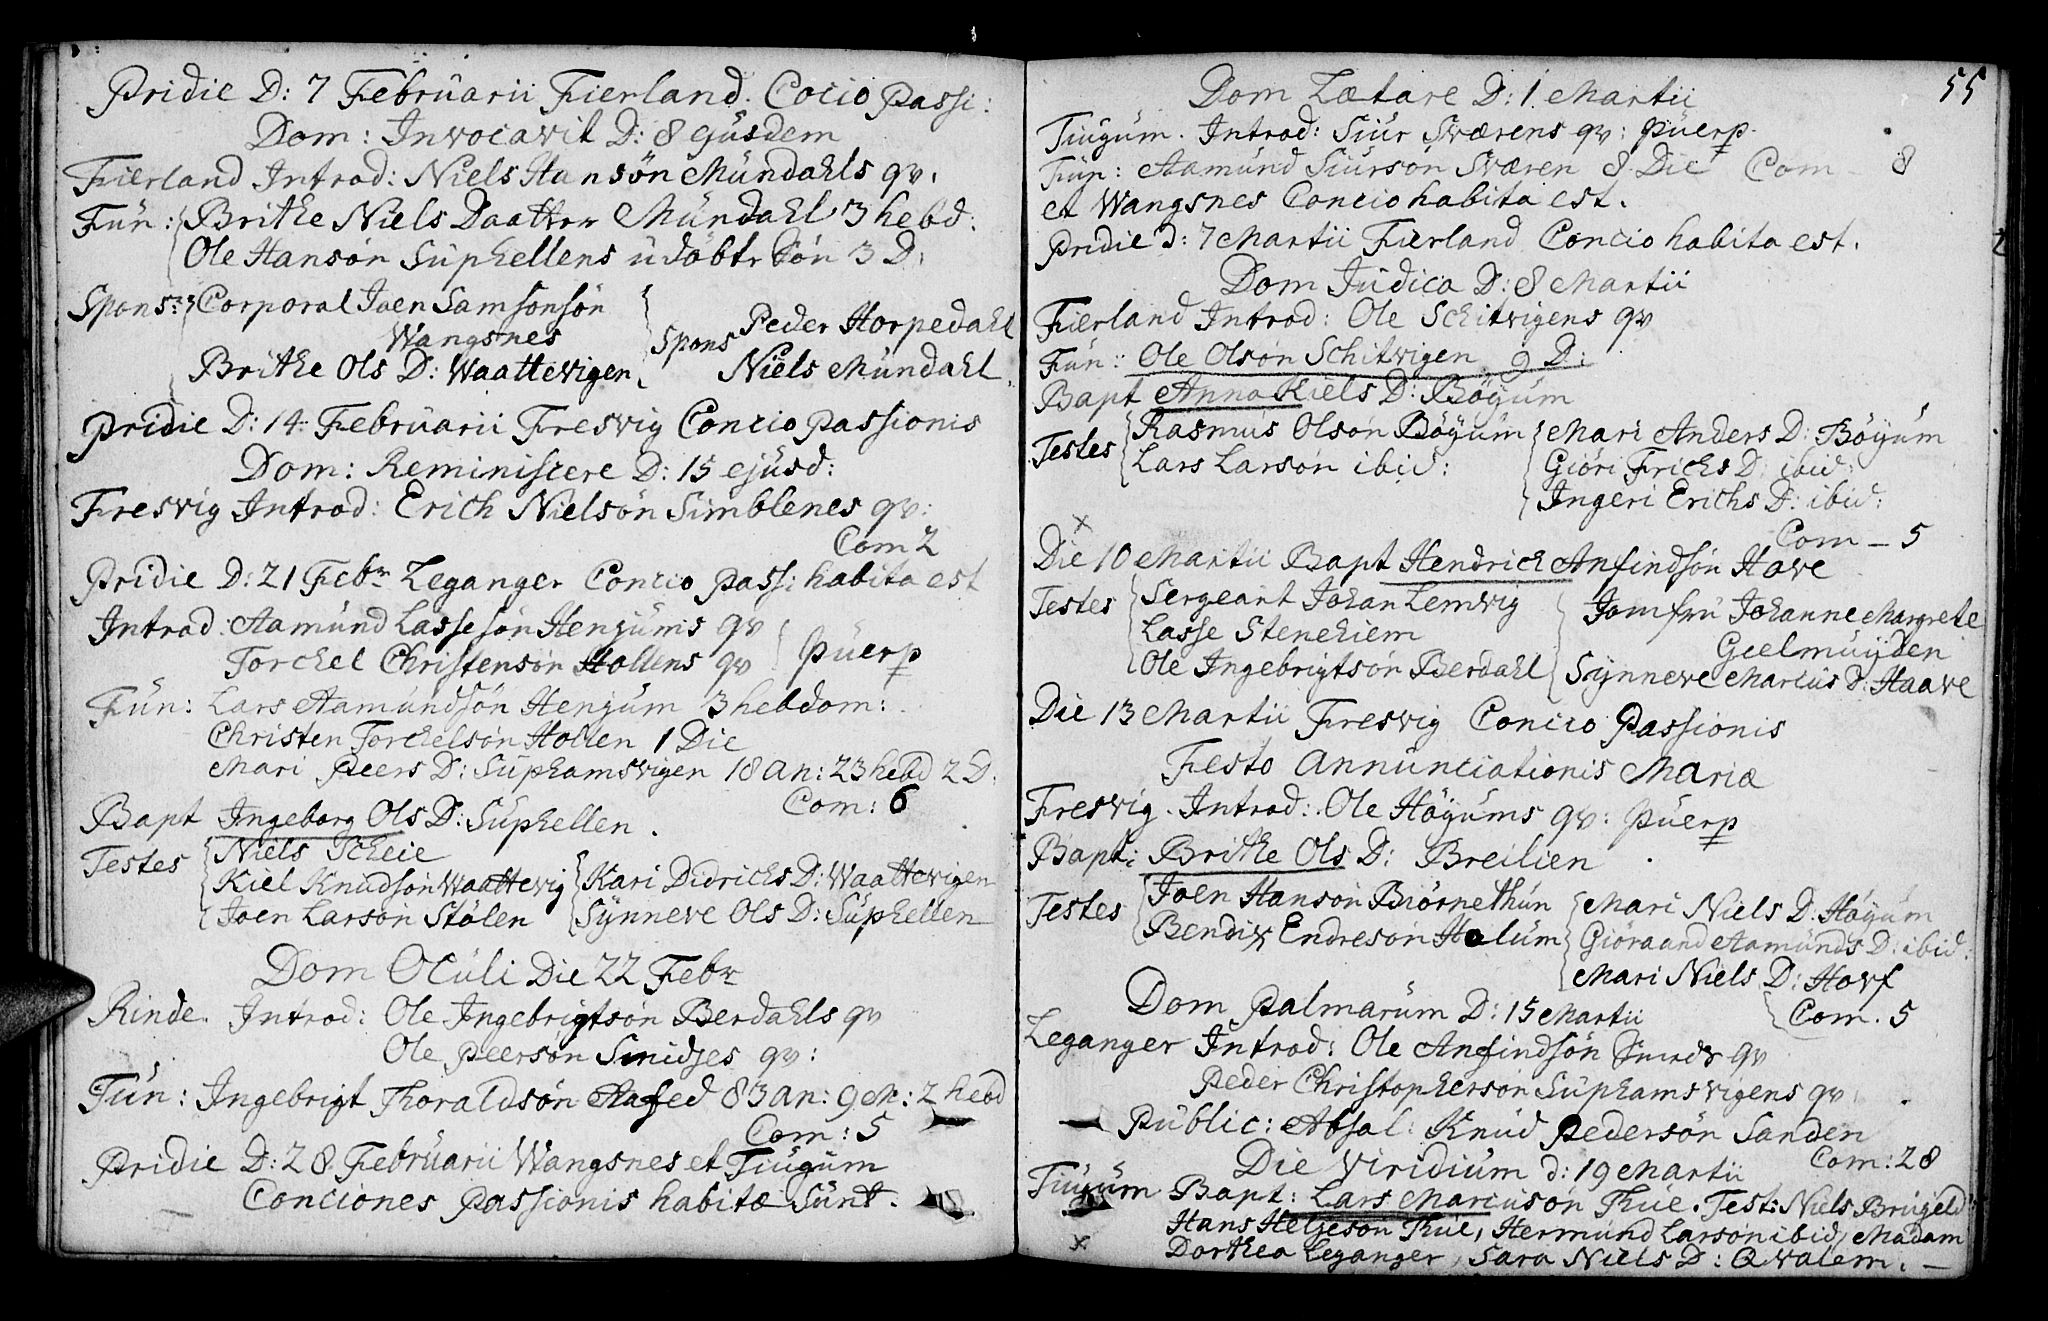 Pridie D: 7 Februarii Fierland. Cocio Passi:
Dom: Invocavit D: 8 ejusdem
Fierland Introd: Niels Hansøn Mundahls qv.
Fun: Brithe Niels Daatter Mundahl 3 hebd:
Ole Hansøn Suphellens udøbtr Søn 3 D.
Spons: Corporal Joen Samsonsøn
Wangsnes
Brithe Ols D: Waattevigen
Spons Peder Horpedahl
Niels Mundahl.
Pridie D: 14 Februarii Fresvig Concio Passionis
Dom: Reminiscere D: 15 ejusd:
Fresvig Introd: Erich Nielsøn Simblenes qv:
Com 2
Pridie D: 21 Febr Leganger Concio Pass: habita est
Introd: Aamund Lassesøn Henjums qv
Torchel Christensøn Hollens qv puerp
Fun: Lars Aamundsøn Henjum 3 hebdom:
Christen Torchelsøn Hollen 1 Die
Mari Peers D: Suphamsvigen 18 an: 23 hebd 2 D:
Com: 6
Bapt Ingeborg Ols D: Suphellen.
Testes Niels Scheie
Kiel Knudsøn Waattevig
Joen Larsøn Stølen
Kari Didrichs D: Waattevigen
Synneve Ols D: Suphellen
Dom Oculi Die 22 Febr
Rinde. Introd: Ole Ingebrigtsøn Berdahls qv
Ole Peersøn Smidjes qv:
Fun: Ingebrigt Thoraldsøn Aafed 83 an: 9 M: 2 hebd
Com: 5
Pridie D: 28 Februarii Wangsnes et Tiugum
Conciones Passionis habitæ sunt.
55
Dom Lætare D: 1 Martii
Tiugum. Introd: Siur Sværens qv: puerp.
Fun: Aamund Siursøn Sværen 8 Die Com - 8
et Wangsnes Concio habita est.
Pridie d: 7 Martii Fierland Concio habita est.
Dom Judica D: 8 Martii
Fierland Introd: Ole Schitvigens qv
Fun: Ole Olsøn Schitvigen 9 D:
Bapt Anna Kiels D: Bøyum
Testes Rasmus Olsøn Bøyum
Lars Larsøn ibid:
Mari Anders D: Bøyum
Giøri Frichs D: ibid:
Ingeri Erichs D: ibid:
Com - 5
x
Die 10 Martii Bapt Hendrich Anfindsøn Hove
Testes Sergeant Johan Lemvig
Lasse Stenehiem
Ole Ingebrigtsøn Berdahl
Jomfru Johanne Margrete
Geelmuyden
Synneve Marcus D: Haave
Die 13 Martii Fresvig Concio Passionis
Festo Annunciationis Mariæ
Fresvig. Introd: Ole Høyums qv: puerp
Bapt: Brithe Ols D: Breilien
Testes Joen Hansøn Biørnethun
Bendix Endresøn Holum
Mari Niels D. Høyum
Giøraand Aamunds D: ibid:
Mari Niels D: Hovf
Com. 5
Dom Palmarum D: 15 Martii
Leganger Introd: Ole Anfindsøn qv
Peder Christophersøn Suphamsvigens qv:
Public: Absol: Knud Pedersøn Sanden
Com: 28
Die Viridium d: 19 Martii
Tiugum Bapt: Lars Marcusøn Thue. Test: Niels Brugeld
Hans Helgesøn Thue, Hermund Larsøn ibid, Madam
x
Dorthea Leganger, Sara Niels D: Qvalem.